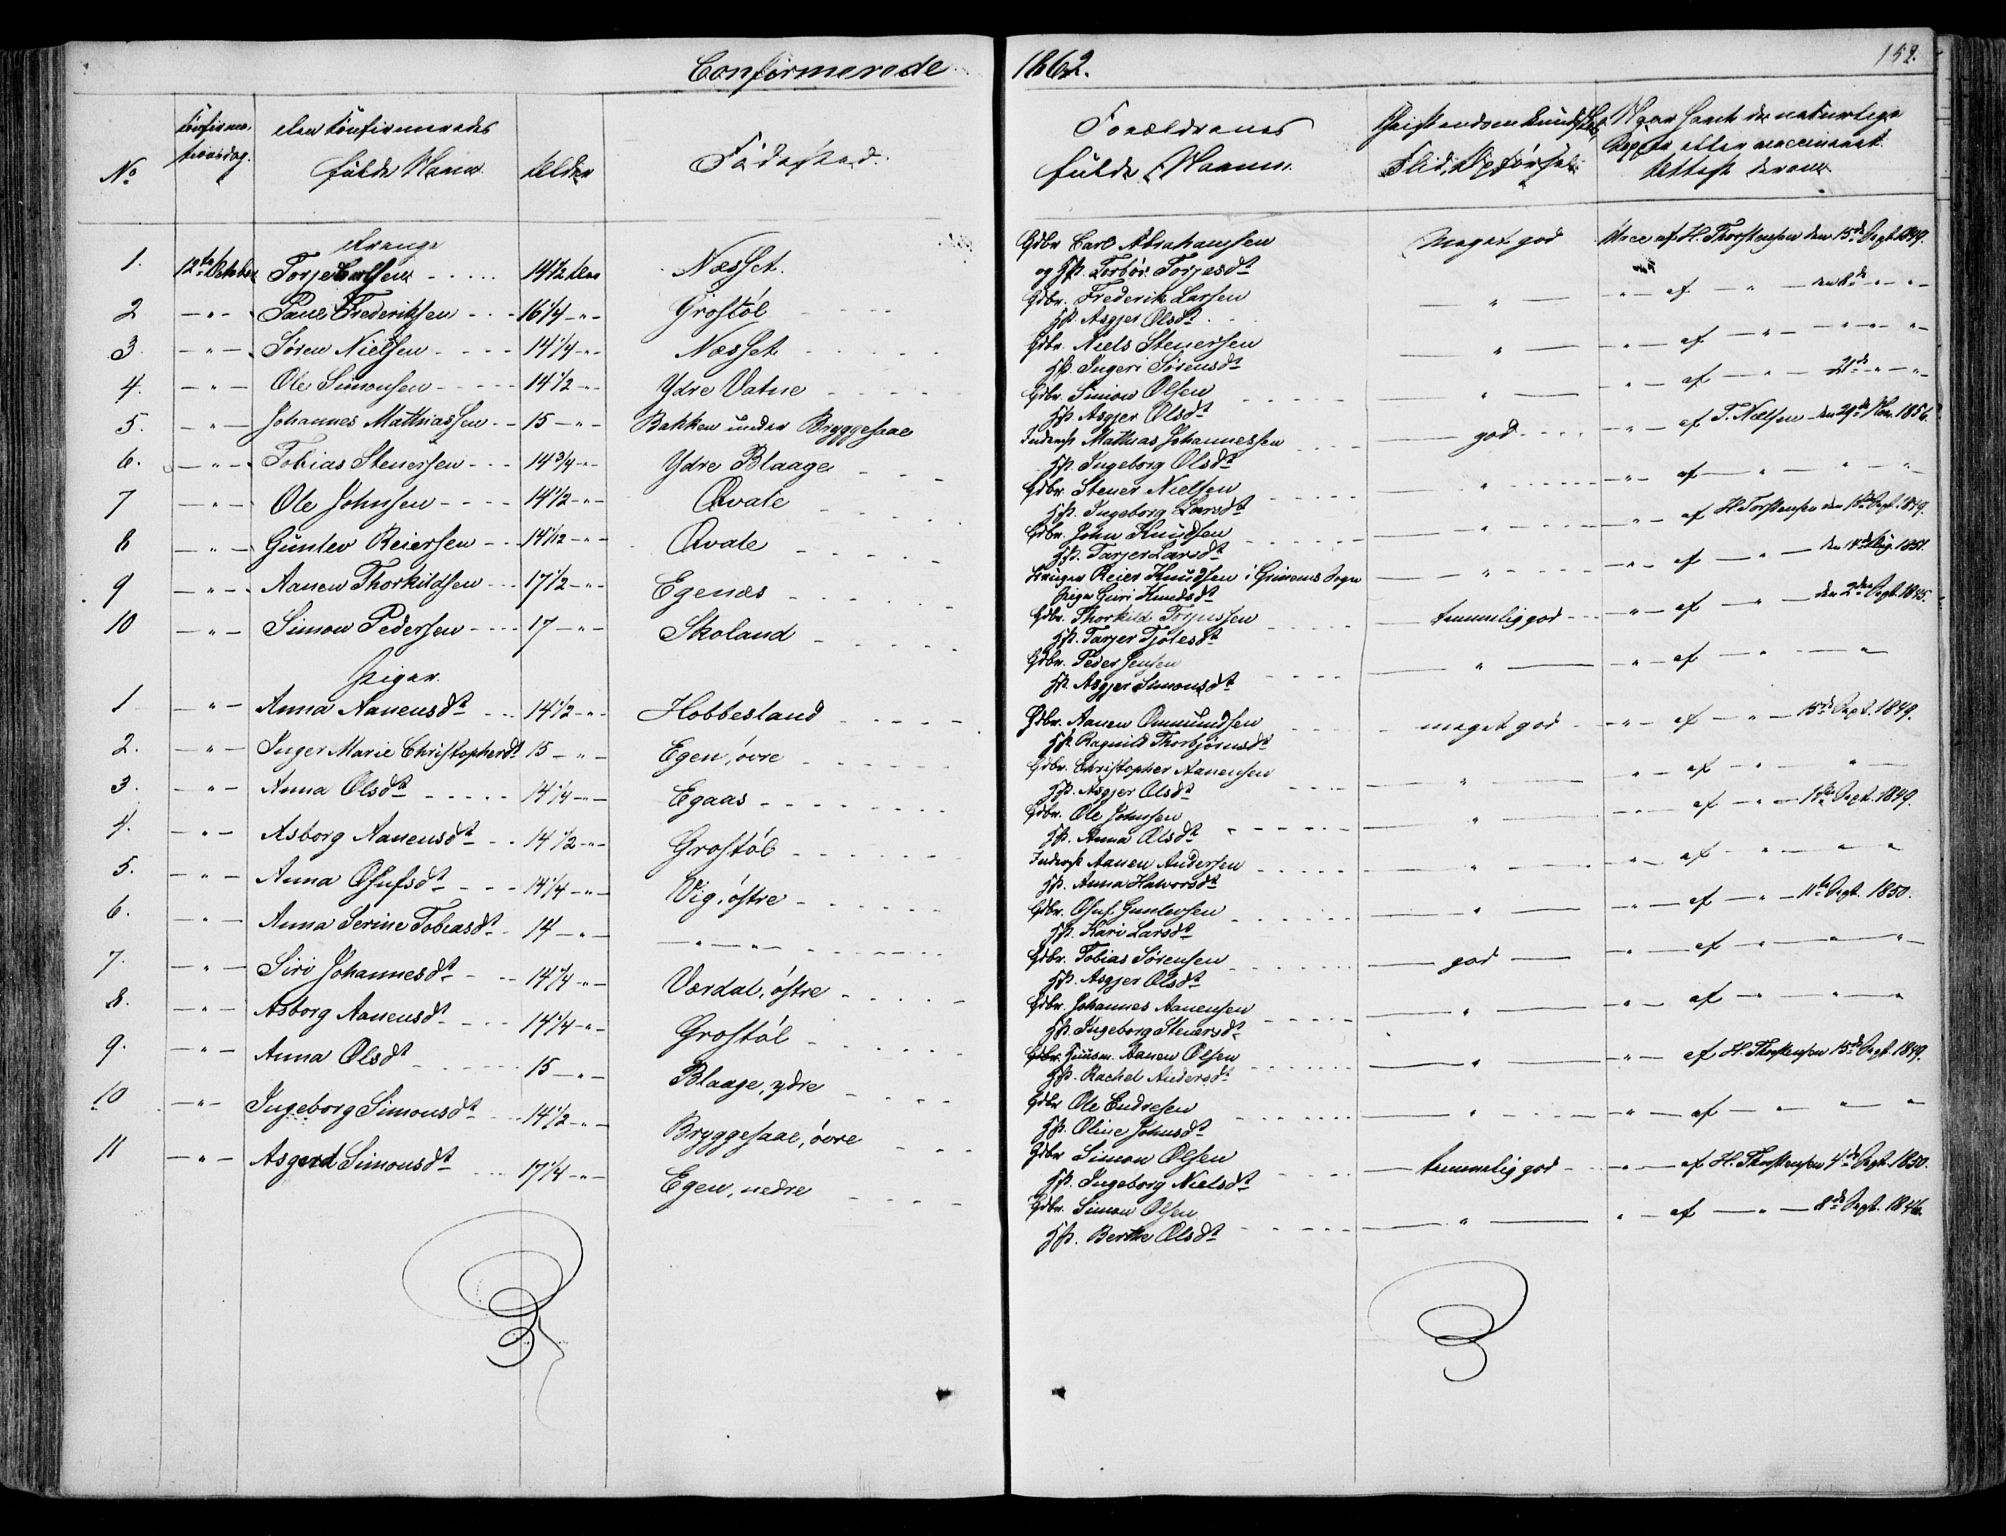 Confirmerede 1862. 152.
No Confirmationsdag. den Confirmeredes fulde Navn. Alder Födested. Forældrenes fulde Navne. Christendomskundskab, Flid, Opførsel. Hvor havt de naturlige Kopper eller vaccineret. Attest derom.
Drenge
1. 12te October Torje Carlsen 14 1/2 Aar Næsset. Gdbr Carl Abrahamsen og Hst. Torbør Torjesdt Meget god Vacc af H. Thorstensen den 15de Sept. 1849.
2 — " — Paul Frederiksen 16 1/4 — " — Grostöl Gdbr. Frederik Larsen Hst. Asgjer Olsdt — " — " — af — " — den 8de — " —
3. — " — Søren Nielsen 14 1/4 — " — Næsset Gdbr. Niels Stenersen Hst. Ingeri Sørensdt — " — " — af — " — " — " —
4. — " — Ole Simonsen 14 1/2 — " — Ydre Vatne Gdbr. Simon Olsen Hst. Asgjer Olsdt — " — " — af — " — 21de — " —
5. — " — Johannes Mathiassen 15 — " — Bakken under Bryggesaae Inderst Mathias Johannessen Hst. Ingeborg Olsdt god " — af T. Nielsen den 29de Nov. 1856.
6. — " — Tobias Stenersen 14 3/4 — " — Ydre Blaage Gdbr. Stener Nielsen Hst. Ingeborg Larsdt — " — " — af — " — " — " —
7 — " — Ole Johnsen 14 1/2 — " — Qvale Gdbr. John Knudsen Hst. Tarjer Larsdt — " — " — af H. Torstensen den 15de Sept. 1849.
8 — " — Gunlev Reiersen 14 1/12 — " — Qvale Reier Knudsen i Grimens Sogn Pige Guri Knudsdt — " — " — af — " — den 1851.
9 — " — Aanen Thorkildsen 17 1/2 — " — Egenæs Gdbr. Thorkild Torjussen Hst. Tarjer Tjølesdt temmelig god " — af — " — den 2den Sept. 1845.
10 — " — Simon Pedersen 17 — " — Skoland Gdbr. Peder Jensen Hst. Asgjer Simonsdt — " — " — af — " — " —
Piger.
1 — " — Anna Aanensdt 14 1/2 — " — Hobbesland Gdbr. Aanen Ommundsen Hst. Ragnild Thorbjørnsdt meget god " — af — " — 15de Sept. 1849.
2. — " — Inger Marie Christophersdt 15 — " — Egen, övre Gdbr. Christopher Aanensen Hst. Asgjer Olsdt — " — " — af — " — " —
3. — " — Anna Olsdt 14 1/4 — " — Egaas Gdbr. Ole Johnsen Hst. Anna Olsdt — " — " — af — " — Sept. 1849.
4. — " — Asborg Aanensdt 14 1/2 — " — Grostöl Inderst Aanen Andersen Hst. Anna Haworsdt — " — " — af — " — " — "
5. — " — Anna Osufsdt 14 1/4 — " — Vig, östre Gdbr. Osuf Gunlevsen Hst. Kari Larsdt — " — " — af — " — 11te Sept. 1850.
6. — " — Anna Serine Tobiasdt 14 — " — — " — " — Gdbr. Tobias Sörensen Hst. Asgjer Olsdt god " — af — " — " — " —
7. — " — Siri Johannesdt 14 1/4 — " — Værdal, östre Gdbr. Johannes Aanensen Hst. Ingeborg Stenersdt — " — " — af — " — " — "
8. — " — Asborg Aanensdt 14 1/4 — " — Grostöl Gdbr. Huusm. Aanen Olsen Hst. Rachel Andersdt — " — " — af H. Thorstensen 15de Sept. 1849.
9. — " — Anna Olsdt 15 — " — Blaage, ydre Gdbr Ole Endresen Hst. Oline Johnsdt — " — " — af — " — " — "
10 — " — Ingeborg Simonsdt 14 1/2 — " — Bryggesaae, övre Gdbr Simon Olsen Hst. Ingeborg Nielsdt temmelig god " — af H. Thorstensen 4de Sept. 1850.
11 — " — Asgerd Simonsdt 17 1/4 — " — Egen, nedre Gdbr. Simon Olsen Hst. Berthe Olsdt — " — " — af — " — 8de Sept. 1846.